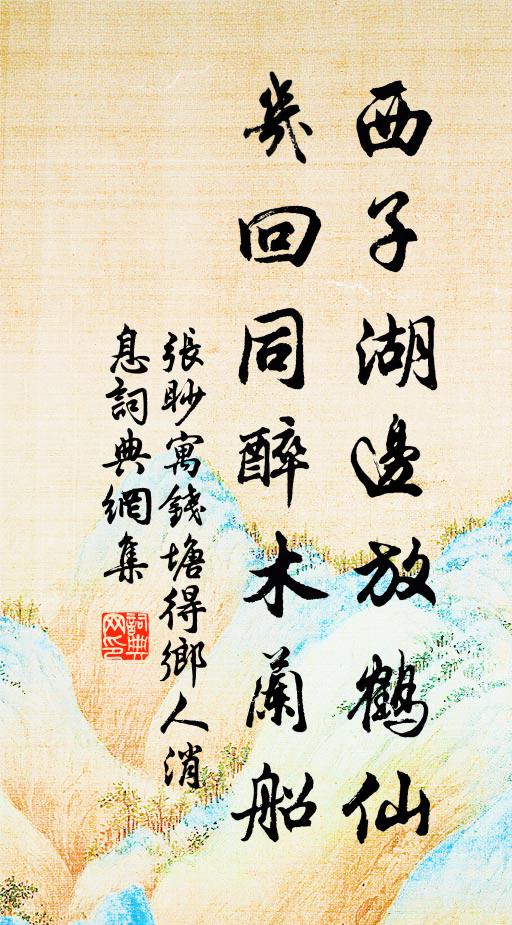 西子湖邊放鶴仙
幾回同醉木蘭船
張眇寓錢塘得鄉人消
息詞典網集
詞典
网印